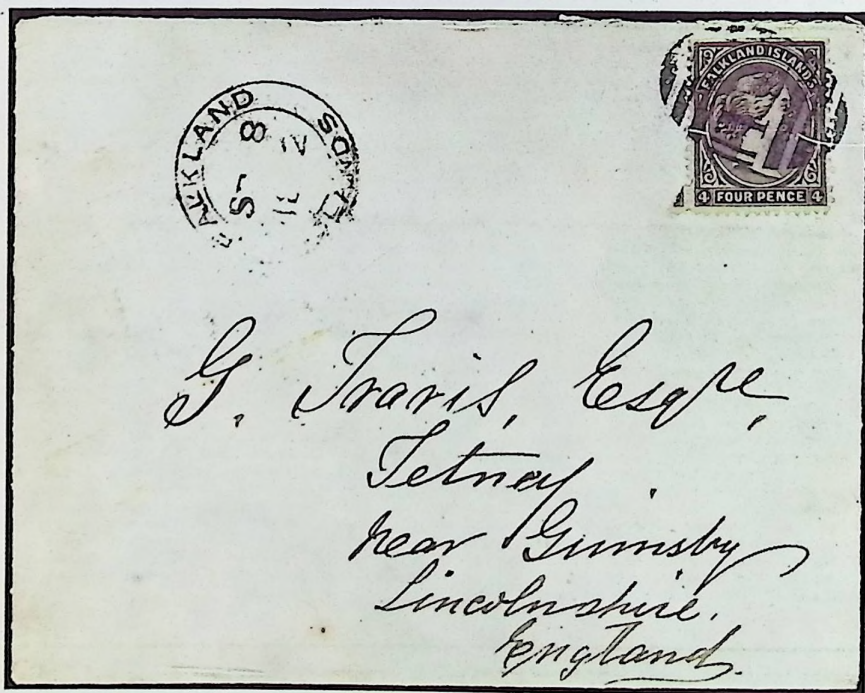 FALKLAND ISLANDS
FALKLAND
8
FALKLAND ISLANDS
4 FOUR PENCE 4
G. Travis, Esqre,
Tetney
near Grimsby
Lincolnshire.
England.